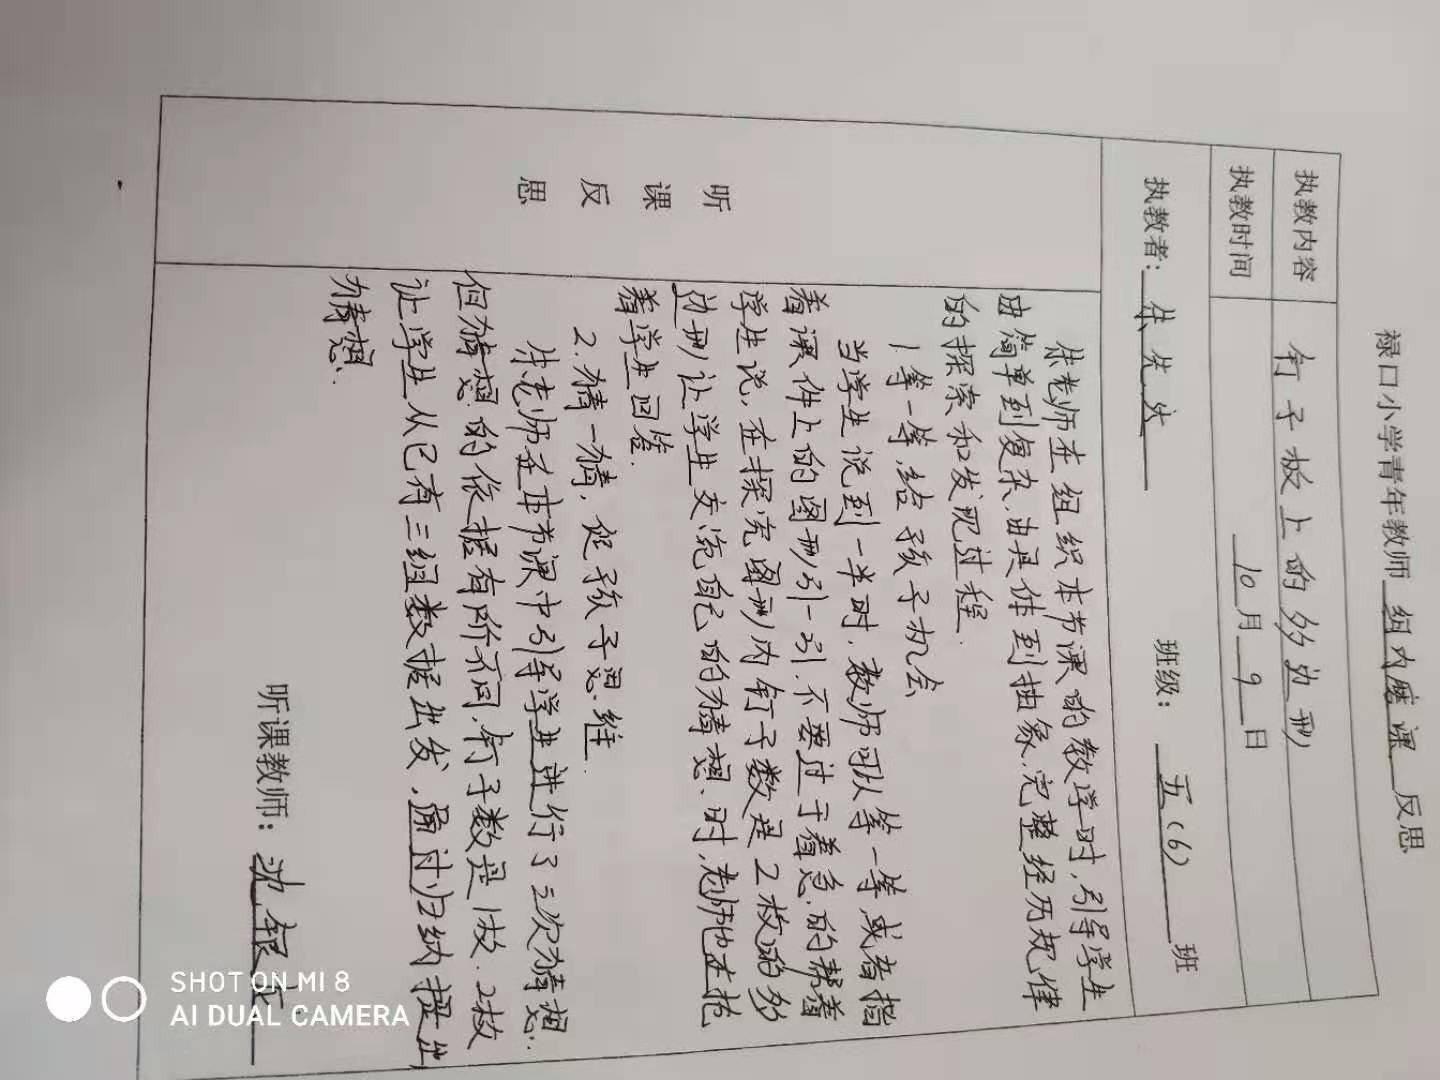 禄口小学青年教师 组内磨课 反思
执教内容 钉子板上的多边形
执教时间 10月9日
执教者： 班级： 五(6) 班
听课反思
朱老师在组织本节课的教学时，引导学生
由简单到复杂，由具体到抽象，完整经历规律
的探索和发现过程.
1.等一等，给孩子机会
当学生说到一半时，教师可以等一等或者指
着课件上的图形引一引，不要过于着急的帮着
学生说，在探究图形内钉子数是2枚的多
边形，让学生交流自己的猜想时，老师也在抢
着学生回答.
2.猜一猜，促孩子思维.
朱老师在本节课中引导学生进行了三次猜想.
但猜想的依据有所不同，钉子数是1枚.2枚
让学生从已有三组数据出发，通过归纳提出
猜想.
听课教师：
SHOT ON MI 8
AI DUAL CAMERA